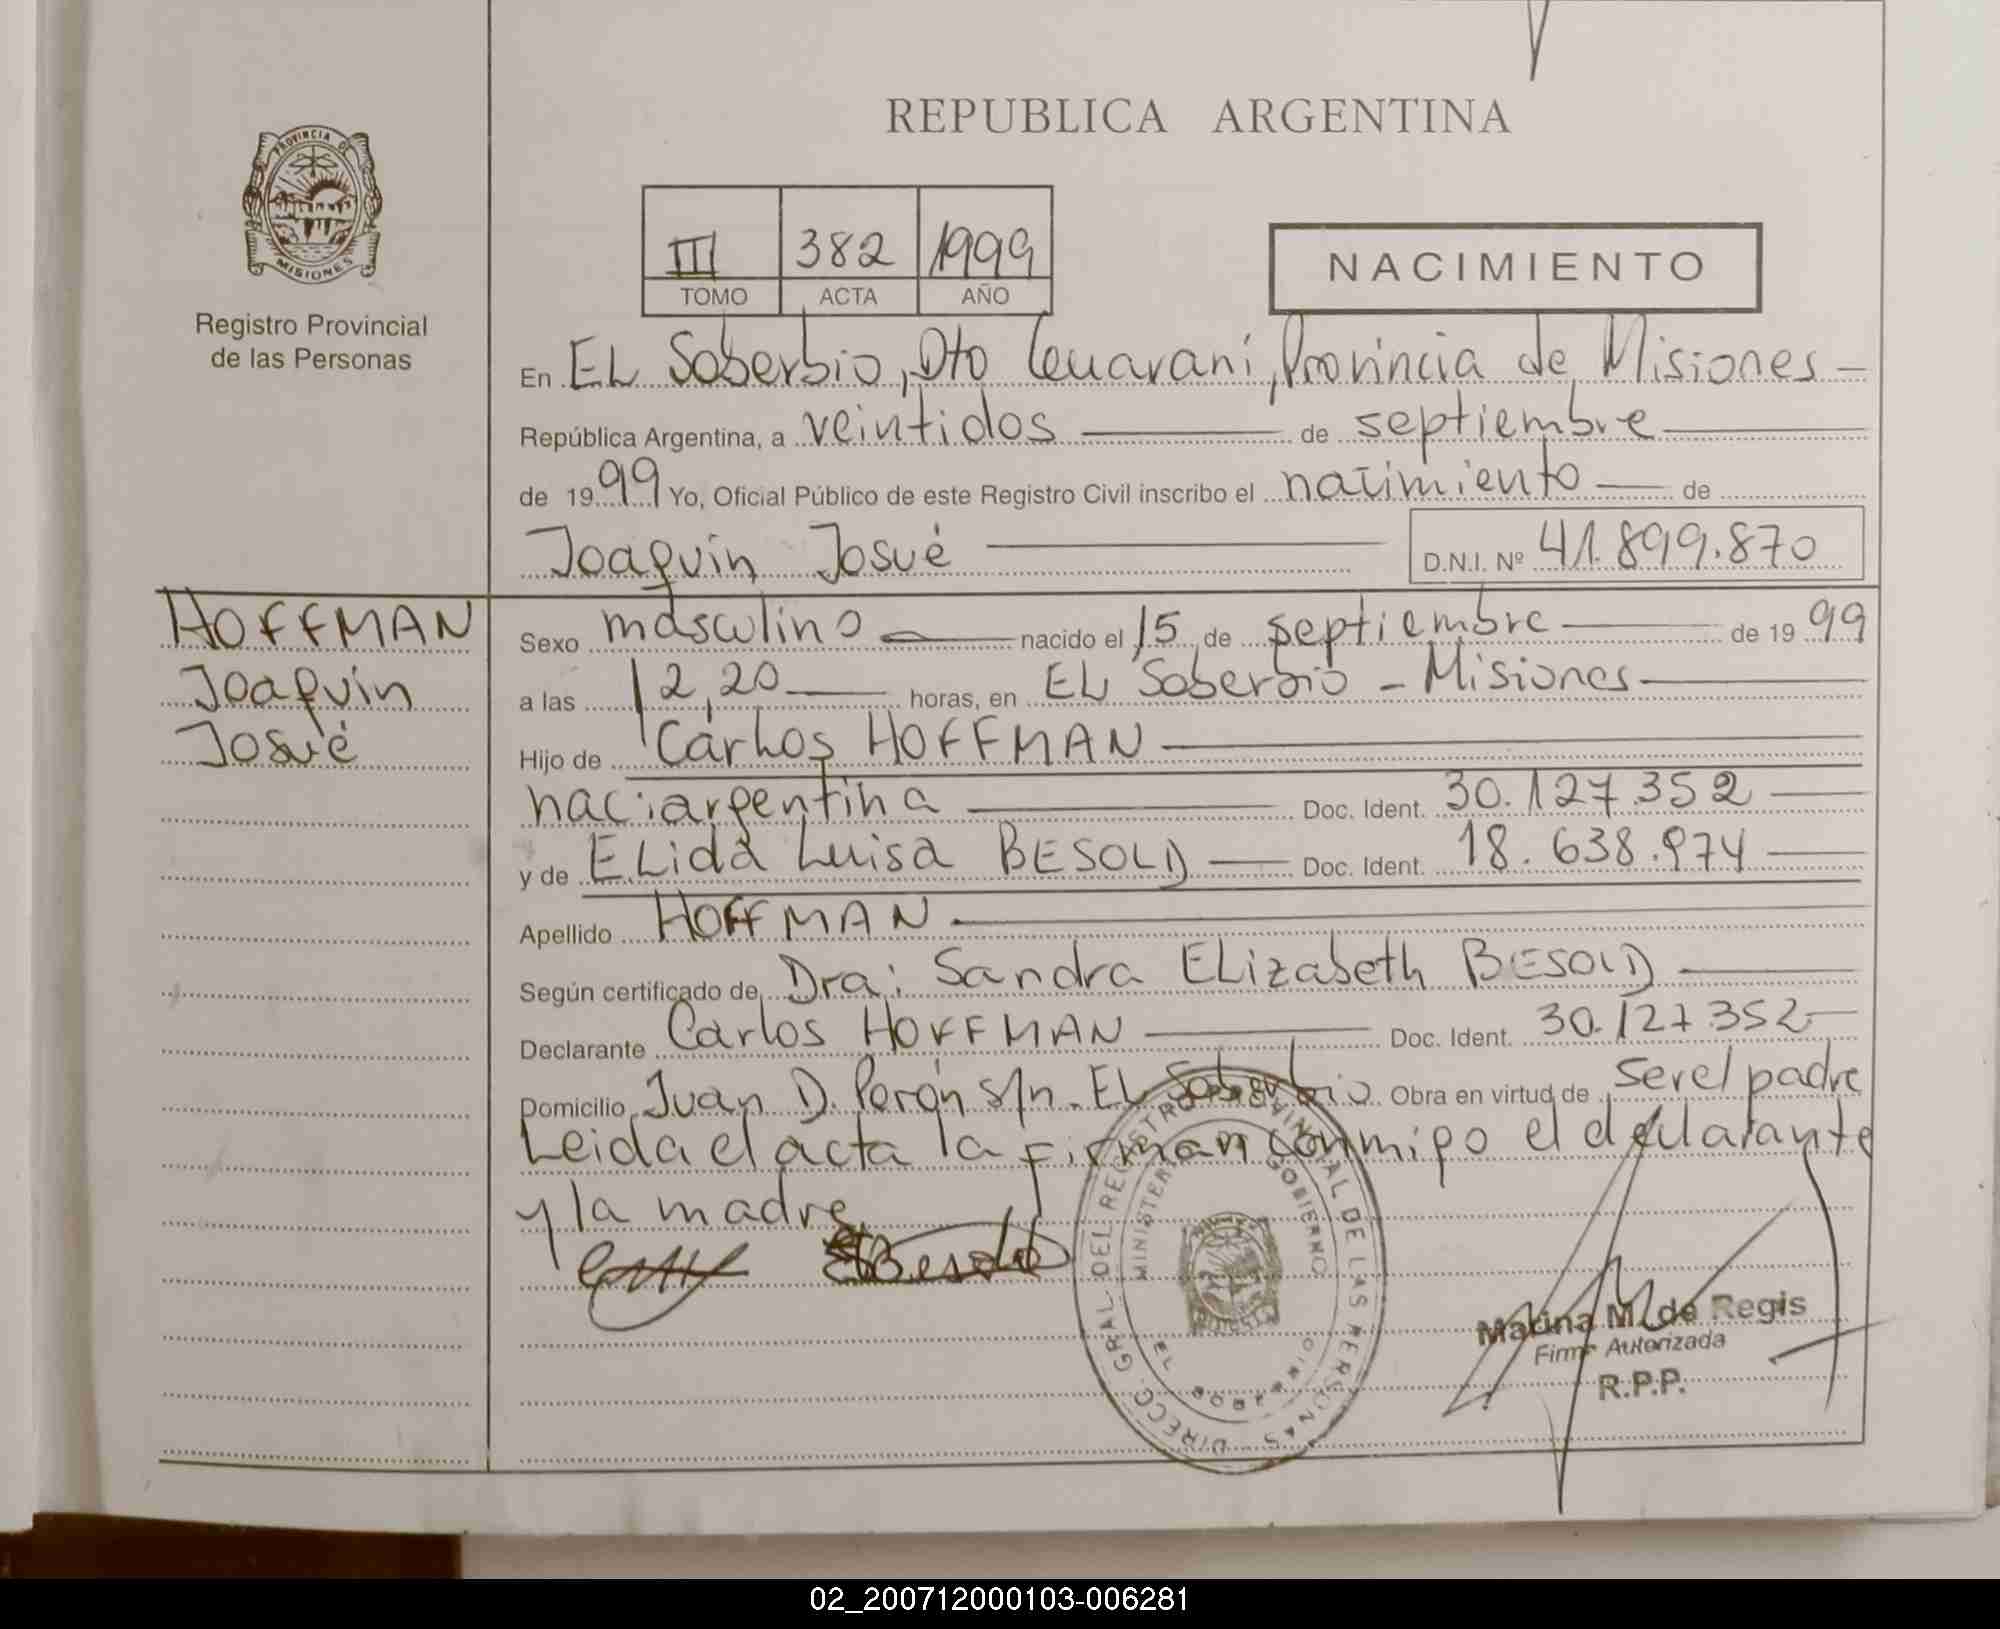 REPUBLICA ARGENTINA
PROVINCIA DE
MISIONES
Registro Provincial
de las Personas
III 382 1999
TOMO ACTA AÑO
NACIMIENTO
En EL Soberbio, Dto Guaraní, Provincia de Misiones —
República Argentina, a veintidos — de septiembre —
de 1999 Yo, Oficial Público de este Registro Civil inscribo el nacimiento — de
Joaquín Josué — D.N.I. Nº 41.899.870
HOFFMAN
Joaquín
Josué
Sexo masculino — nacido el 15 de septiembre — de 1999
a las 12,20 — horas, en EL Soberbio - Misiones —
Hijo de Carlos HOFFMAN —
nac: argentina — Doc. Ident. 30.127.352 —
y de ELida Luisa BESOLD — Doc. Ident. 18.638.974 —
Apellido HOFFMAN —
Según certificado de Dra: Sandra ELizabeth BESOLD —
Declarante Carlos HOFFMAN — Doc. Ident. 30.127.352 —
Domicilio Juan D. Perón s/n. EL Soberbio Obra en virtud de ser el padre
Leida el acta la firman conmigo el declarante
y la madre
EBesold
DIRECC. GRAL. DEL REGISTRO PROVINCIAL DE LAS PERSONAS
MINISTERIO GOBIERNO
MISIONES
EL SOBERBIO
Marina M. de Regis
Firma Autorizada
R.P.P.
02_200712000103-006281